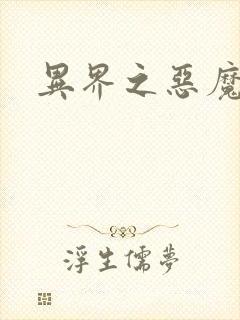 異界之惡魔
浮生儒夢